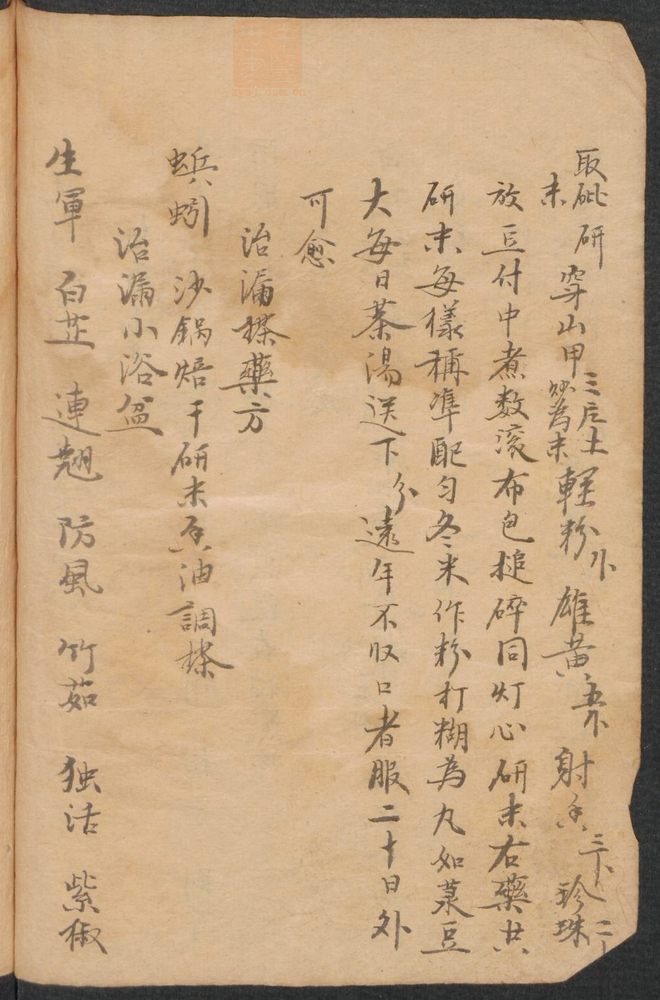 取砒研末 穿山甲三片土炒為末 輕粉 雄黃 射香三 珍珠二
放豆付中煮数滚布包搥碎同灯心研末右藥共
研末每樣稱準配匀冬米作粉打糊為丸如菉豆
大每日茶湯送下分遠年不収口者服二十日外
可愈
治漏搽藥方
蚯蚓 沙鍋焙干研末香油調搽
治漏小浴盆
生軍 白芷 連翹 防風 竹茹 独活 紫椒